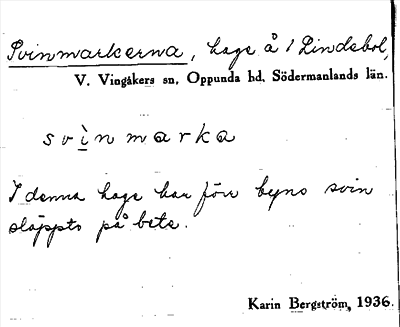 Svinmarkerna, hage å 1 Lindsbol,
V. Vingåkers sn. Oppunda hd. Södermanlands län.
svìnmarka
I denna hage har förr byns svin
släppts på bete.
Karin Bergström, 1936.